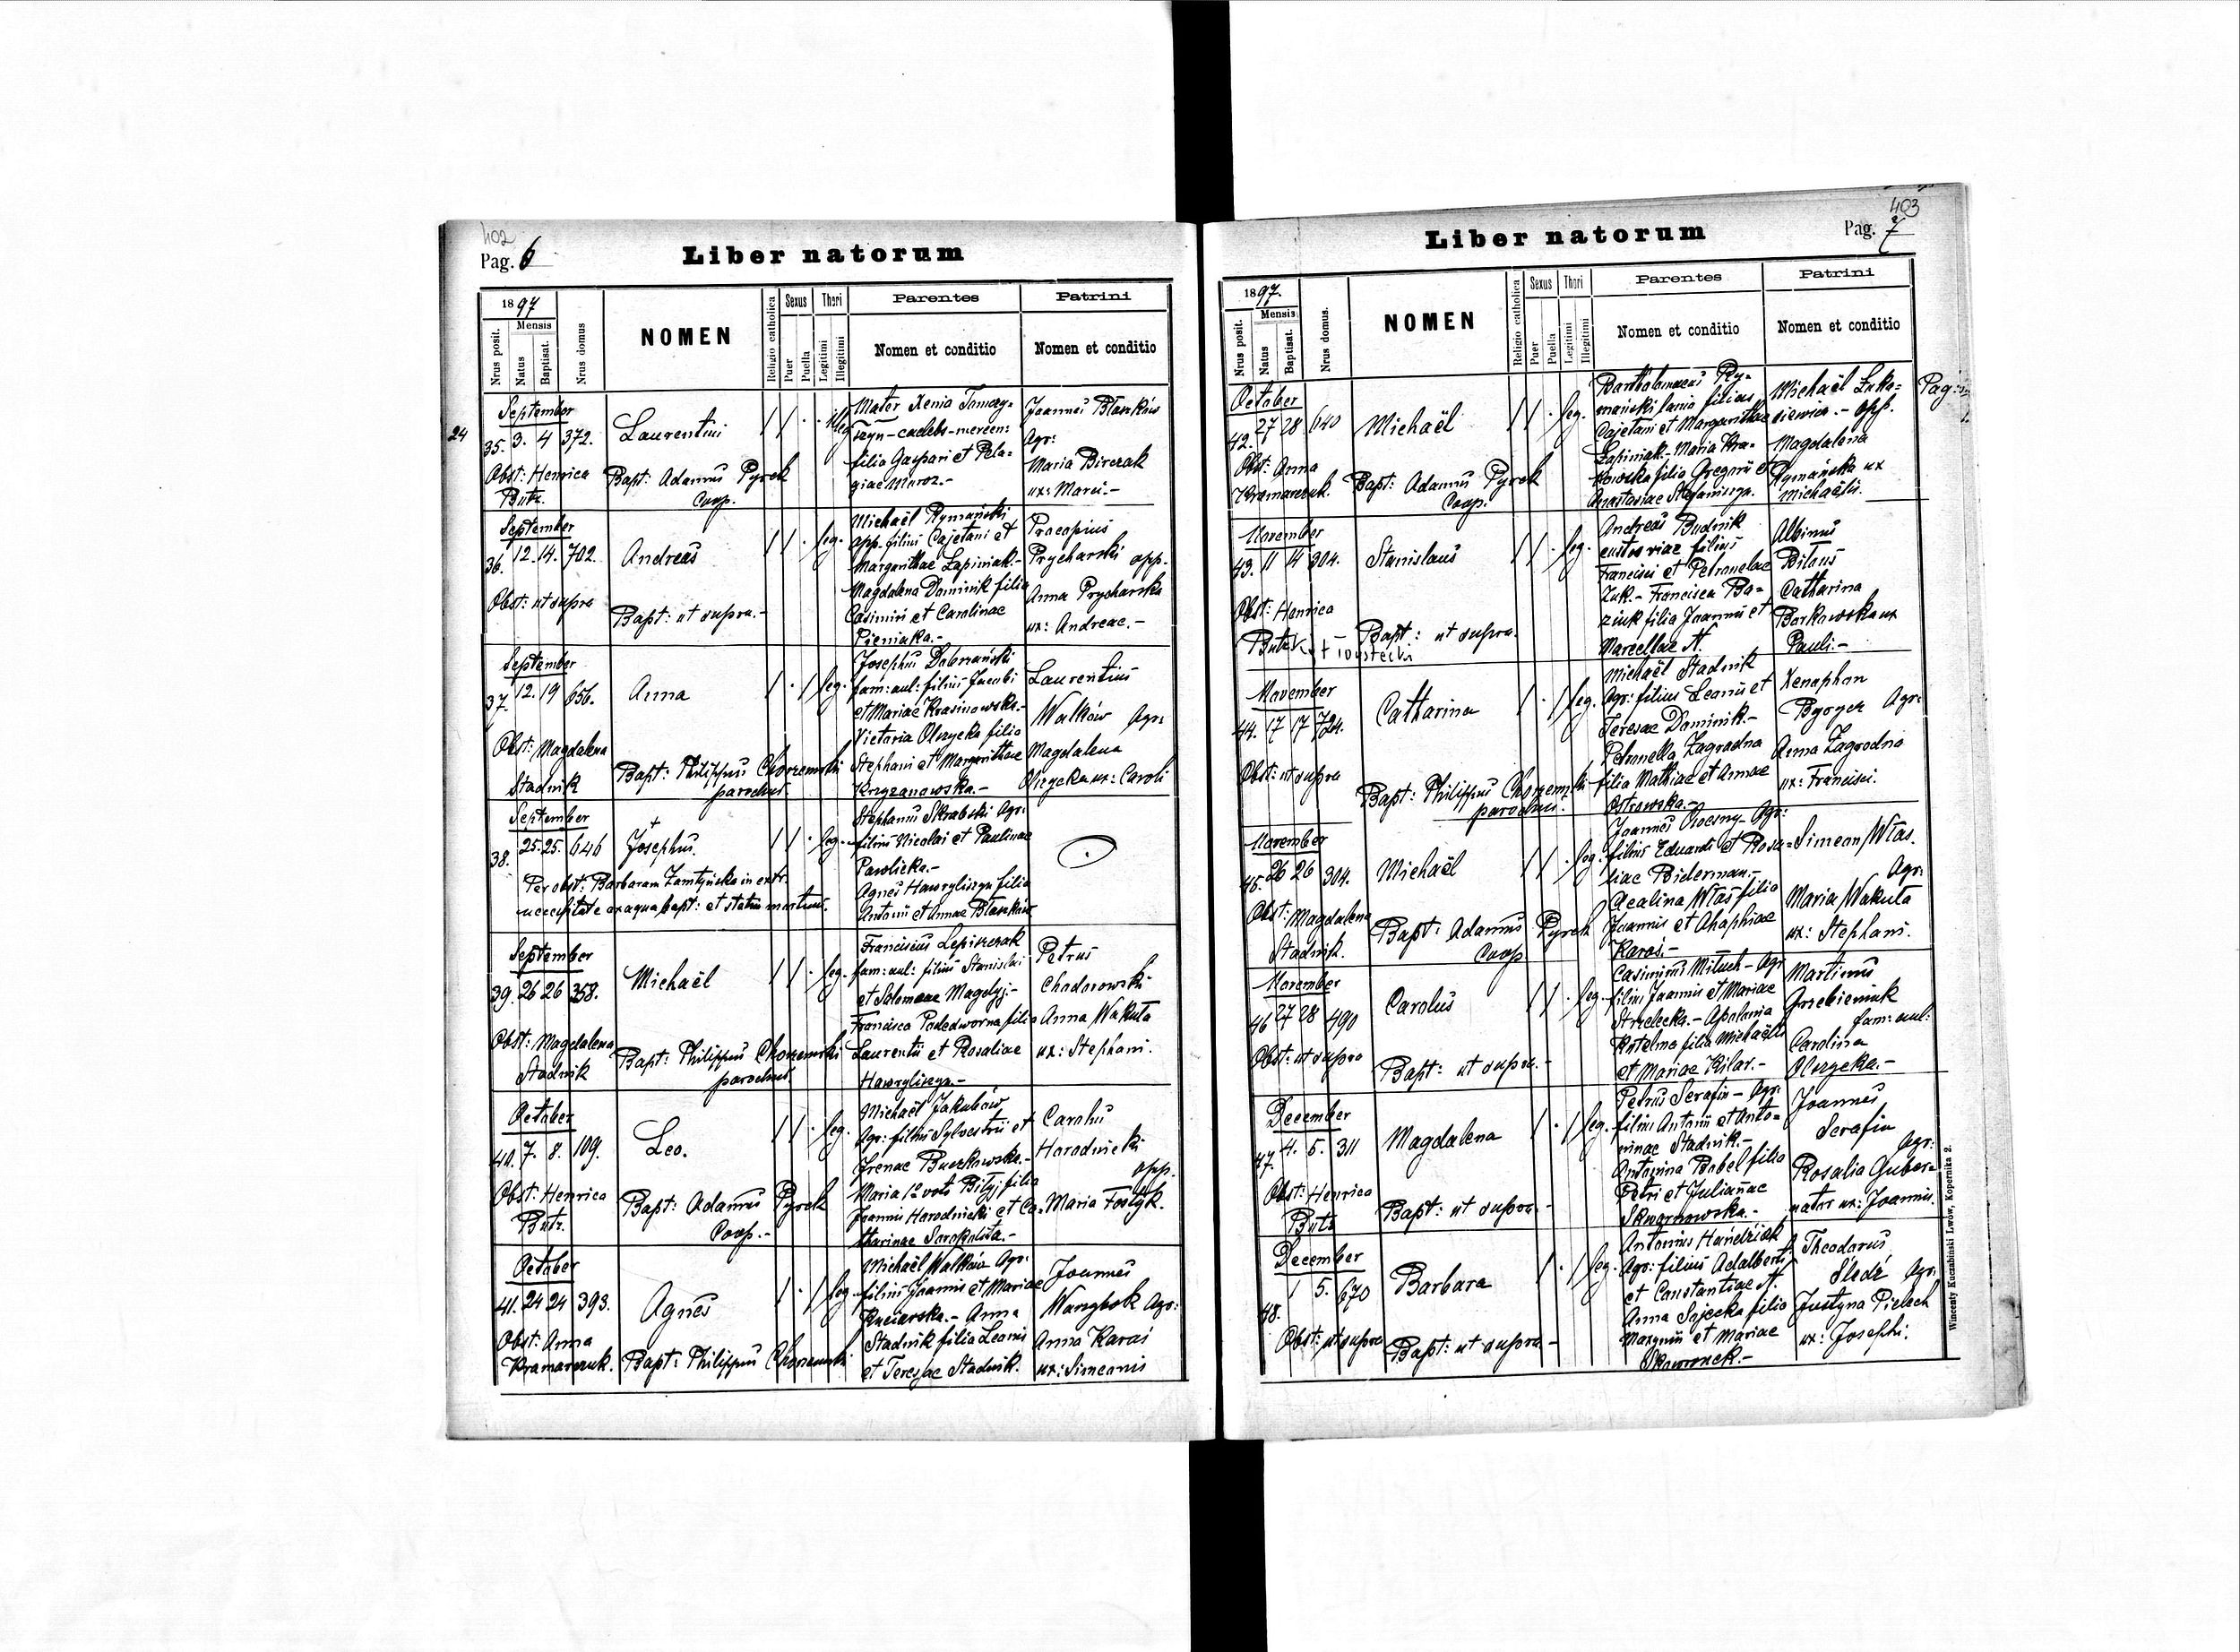 402
Pag. 6
Liber natorum
1897
Nrus posit.
Mensis
Natus
Baptisat.
Nrus domus
NOMEN
Religio catholica
Sexus
Puer
Puella
Thori
Legitimi
Illegitimi
Parentes
Nomen et conditio
Patrini
Nomen et conditio
24
September
35. 3. 4 372.
Obst: Henrica
Butz.
Laurentius
Bapt: Adamus Pyrek
Coop.
illeg.
Mater Xenia
caelebs
filia Gaspari et Pela=
giae Moroz.-
Joannes Błaszków
Agr:
Maria Birczak
ux: Marci.-
September
36. 12. 14. 702.
Obst: ut supra
Andreas
Bapt: ut supra.-
leg.
Michaël Rymański
opp. filius Cajetani et
Margarithae Łapiniak.-
Magdalena Dominik filia
Casimiri et Carolinae
Pieniaka.-
Procopius
Prycharski opp.
Anna Prycharska
ux: Andreae.-
September
37. 12. 19 656.
Obst: Magdalena
Stadnik
Anna
Bapt: Philippus Chorzemski
parochus
leg.
Josephus
fam: aul: filius Jacobi
et Mariae Krasinowska.-
Victoria Olszycka filia
Stephani et Margarithae
Krzyzanowska.-
Laurentius
Walków Agr:
Magdalena
Olszycka ux: Caroli
September
38. 25. 25. 646
Josephus.
Per obst: Barbaram Zamtyńska in extr.
necessitate ex aqua bapt: et statim mortuus.
leg.
Stephanus Skrabski Agr:
filius Nicolai et Paulinae
Pawlicka.-
Agnes Hawryliszyn filia
Antonii et Annae Błaszków
September
39. 26 26 358.
Obst: Magdalena
Stadnik
Michaël
Bapt: Philippus Chorzemski
parochus
leg.
Franciscus Lepiszczak
fam: aul: filius Stanislai
et Salomeae Magdyj.-
Francisca Podedworna filia
Laurentii et Rosaliae
Hawryliszyn.-
Petrus
Chodorowski
Anna Wakuta
ux: Stephani.
October
40. 7. 8. 109.
Obst: Henrica
Butz.
Leo.
Bapt: Adamus Pyrek
Coop.-
leg.
Michaël Jakubów
Agr: filius Sylvestrii et
Irenae Buczkowska.-
Maria 1º voto Bilyj filia
Joannis Harodnicki et Ca=
tharinae
Carolus
Harodnicki
opp.
Maria Fostyk.
October
41. 24 24 393.
Obst: Anna
Kramarczuk.
Agnes
Bapt: Philippus Chorzemski
leg.
Michaël Walków Agr:
filius Joannis et Mariae
Kuciarska.- Anna
Stadnik filia Leonis
et Teresae Stadnik.
Joannes
Warybok Agr:
Anna Karaś
ux: Simeonis
403
Pag. 7
Liber natorum
1897.
Nrus posit.
Mensis
Natus
Baptisat.
Nrus domus.
NOMEN
Religio catholica
Sexus
Puer
Puella
Thori
Legitimi
Illegitimi
Parentes
Nomen et conditio
Patrini
Nomen et conditio
October
42. 27 28 640
Obst: Anna
Kramarczuk.
Michaël
Bapt: Adamus Pyrek
Coop.
leg.
Bartholomaeus Ry=
mański lanio filius
Cajetani et Margarithae
Łapiniak.- Maria Kra=
kowska filia Gregorii et
Anastasiae Stefaniszyn.
Michaël Łuka=
siewicz.- opp.
Magdalena
Rymańska ux
Michaëlis.
Pag:
November
43. 11 14 304.
Obst: Henrica
Butz
Stanislaus
Bapt: ut supra.
leg.
Andreas Budnik
custos viae filius
Francisci et Petronelae
Zuk.- Francisca
filia Joannis et
Marcellae N.
Albinus
Bilaus
Catharina
Borkowska ux
Pauli.-
November
44. 17 17 724.
Obst: ut supra
Catharina
Bapt: Philippus Chorzemski
parochus.
leg.
Michaël Stadnik
Agr: filius Leonis et
Teresae Dominik.-
Petronella Zagrodna
filia Mathiae et Annae
Ostrowska.-
Xenophon
Agr:
Anna Zagrodna
ux: Francisci.
November
45. 26 26 304.
Obst: Magdalena
Stadnik.
Michaël
Bapt: Adamus Pyrek
Coop
leg.
Joannes Ocesny- Agr:
filius Eduardi et Rosa=
liae Biderman.-
Acalina Włas filia
Joannis et Ahaphiae
Karaś.-
Simeon Włas.
Agr:
Maria Wakuta
ux: Stephani.
November
46 27 28 490
Obst: ut supra
Carolus
Bapt: ut supra.-
leg.
Casimirus Mituch- Agr
filius Joannis et Mariae
Strzelecka.- Apolonia
filia Michaëlis
et Mariae Kilar.-
Martinus
Grzebieniuk
fam: aul:
Carolina
Olszycka.-
December
47. 4. 5. 311
Obst: Henrica
Butz
Magdalena
Bapt: ut supra.-
leg.
Petrus Serafin- Agr:
filius Antonii et Anto=
ninae Stadnik.-
Antonina Babel filia
Petri et Julianae
Skworonowska.-
Joannes
Serafin
Agr:
Rosalia Guber=
nator ux: Joannis.
December
48. 1 5. 670
Obst: ut supra
Barbara
Bapt: ut supra-
leg.
Antonius
Agr: filius Adalberti
et Constantiae N.
Anna Sajecka filia
et Mariae
Skowronek.-
Theodorus
Śledź Agr:
Justyna Pielech
ux: Josephi.
Wincenty Kuczabiński Lwów, Kopernika 2.